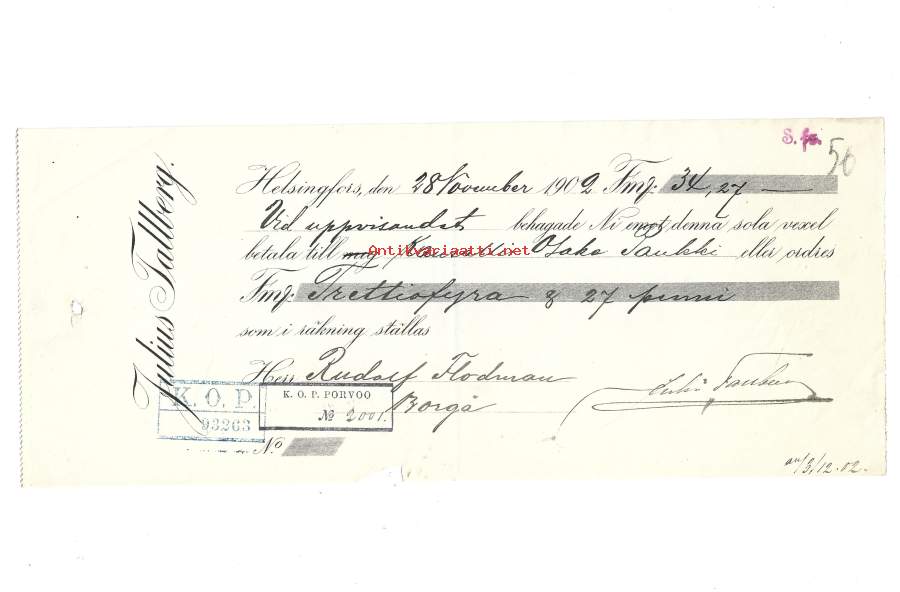 S. fo.
50
Julius Tallberg.
Helsingfors, den 28 November 1902 Fmg: 34,27 —
Vid uppvisandet behagade Ni emot denna sola vexel
betala till mig Osake Pankki eller ordres
Antikvariaatti.net
Fmg: Trettiofyra & 27 penni
som i räkning ställas
Herr Rudolf Flodman
Borgå
K. O. P.
93263
K. O. P. PORVOO
№ 2001.
Julius Tallberg
No
3/12.02.